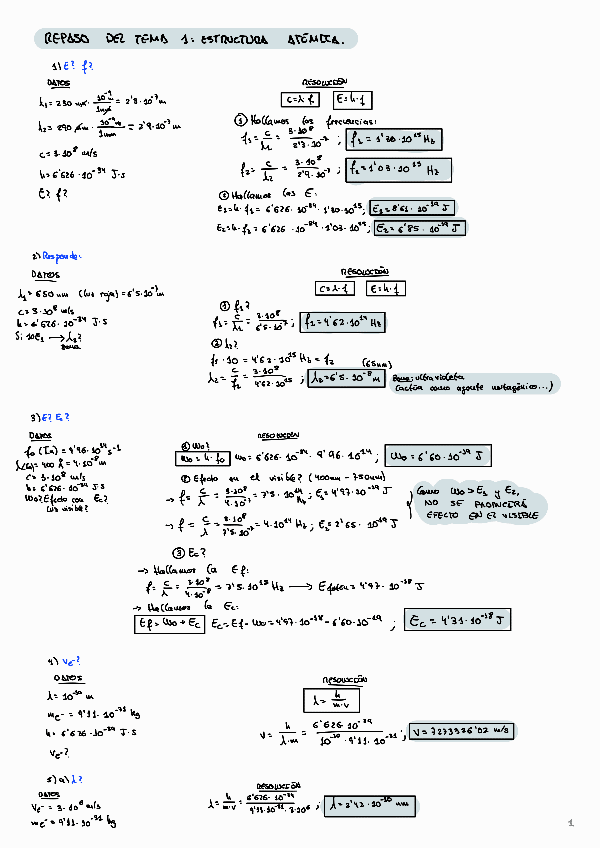 REPASO DEL TEMA 1: ESTRUCTURA ATÓMICA.
1) E? f?
DATOS
λ₁ = 230 nm · 10⁻⁹m / 1nm = 2'3·10⁻⁷m
λ₂ = 290 nm · 10⁻⁹m / 1nm = 2'9·10⁻⁷m
c = 3·10⁸ m/s
h = 6'626·10⁻³⁴ J·s
E? f?
RESOLUCIÓN
c = λ·f E = h·f
① Hallamos las frecuencias:
f₁ = c/λ₁ = 3·10⁸ / 2'3·10⁻⁷ ; f₁ = 1'30·10¹⁵ Hz
f₂ = c/λ₂ = 3·10⁸ / 2'9·10⁻⁷ ; f₂ = 1'03·10¹⁵ Hz
② Hallamos las E:
E₁ = h·f₁ = 6'626·10⁻³⁴·1'30·10¹⁵ ; E₁ = 8'61·10⁻¹⁹ J
E₂ = h·f₂ = 6'626·10⁻³⁴·1'03·10¹⁵ ; E₂ = 6'85·10⁻¹⁹ J
2) Responde:
DATOS
λ₁ = 650 nm (luz roja) = 6'5·10⁻⁷m
c = 3·10⁸ m/s
h = 6'626·10⁻³⁴ J·s
Si 10E₁ → λ₂?
zona
RESOLUCIÓN
c = λ·f E = h·f
① f₁?
f₁ = c/λ₁ = 3·10⁸ / 6'5·10⁻⁷ ; f₁ = 4'62·10¹⁴ Hz
② λ₂?
f₁·10 = 4'62·10¹⁵ Hz = f₂
(65nm)
λ₂ = c/f₂ = 3·10⁸ / 4'62·10¹⁵ ; λ₂ = 6'5·10⁻⁸ m
Zona: ultravioleta
(actúa como agente mutagénico...)
3) E? Ec?
DATOS
c = 3·10⁸ m/s
h = 6'626·10⁻³⁴ J·s
Wo? Efecto con Ec?
luz visible?
RESOLUCIÓN
① Wo?
Wo = h·fo Wo = 6'626·10⁻³⁴·9'96·10¹⁴ ; Wo = 6'60·10⁻¹⁹ J
② Efecto en el visible? (400nm - 750nm)
→ f = c/λ = 3·10⁸ / 4·10⁻⁷ = 7'5·10¹⁴ Hz ; E₁ = 4'97·10⁻¹⁹ J
→ f = c/λ = 3·10⁸ / 7'5·10⁻⁷ = 4·10¹⁴ Hz ; E₂ = 2'65·10⁻¹⁹ J
Como Wo > E₁ y E₂,
NO SE PRODUCIRÁ
EFECTO EN EL VISIBLE
③ Ec?
→ Hallamos la Ef:
f = c/λ = 3·10⁸ / 4·10⁻⁸ = 7'5·10¹⁵ Hz → Efotón = 4'97·10⁻¹⁸ J
→ Hallamos la Ec:
Ef = Wo + Ec Ec = Ef - Wo = 4'97·10⁻¹⁸ - 6'60·10⁻¹⁹ ; Ec = 4'31·10⁻¹⁸ J
4) Ve⁻?
DATOS
λ = 10⁻¹⁰ m
me⁻ = 9'11·10⁻³¹ kg
h = 6'626·10⁻³⁴ J·s
Ve⁻?
RESOLUCIÓN
λ = h / m·v
v = h / λ·m = 6'626·10⁻³⁴ / 10⁻¹⁰·9'11·10⁻³¹ ; V = 7273326'02 m/s
5) a) λ?
DATOS
Ve⁻ = 3·10⁶ m/s
me⁻ = 9'11·10⁻³¹ kg
RESOLUCIÓN
λ = h / m·v = 6'626·10⁻³⁴ / 9'11·10⁻³¹·3·10⁶ ; λ = 2'42·10⁻¹⁰ nm
1